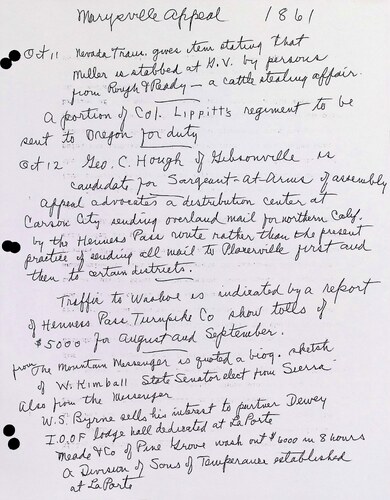 Marysville Appeal 1861
Oct 11 Nevada Trans. gives item stating that
Miller is stabbed at G.V. by persons
from Rough & Ready — a cattle stealing affair.
A portion of Col. Lippitts regiment to be
sent to Oregon for duty
Oct 12 Geo. C. Hough of Gibsonville is
candidate for Sargeant-At-Arms of assembly
Appeal advocates a distribution center at
Carson City sending overland mail for northern Calif.
by the Henness Pass route rather than the present
practice of sending all mail to Placerville first and
then to certain districts.
Traffic to Washoe is indicated by a report
of Henness Pass Turnpike Co show tolls of
$5000 for August and September.
from The Mountain Messenger is quoted a biog. sketch
of W. Kimball State Senator elect from Sierra
Also from the Messenger
W.S. Byrne sells his interest to partner Dewey
I.O.O.F lodge hall dedicated at La Porte
Meade & Co of Pine Grove wash out $6000 in 8 hours
A Division of Sons of Temperance established
at La Porte